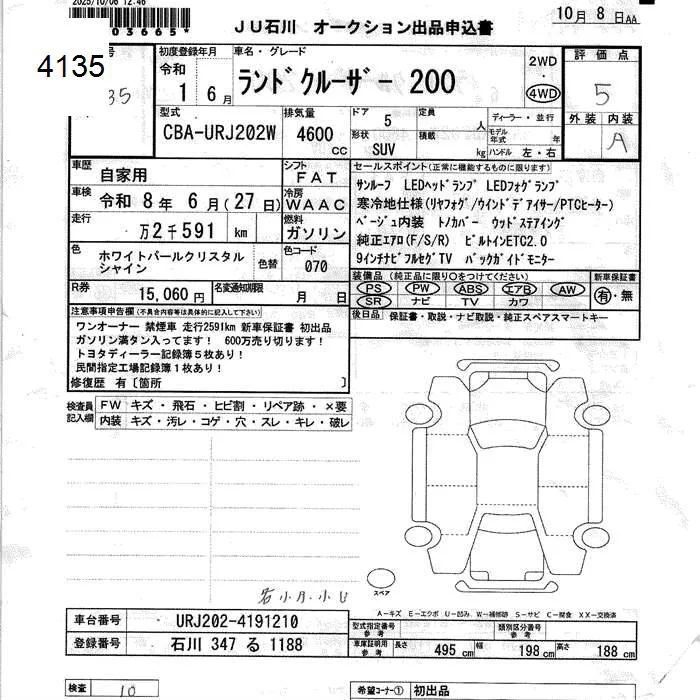 2025/10/06 12:46
*03665*
JU石川 オークション出品申込書
10月 8日AA
4135
号
35
初度登録年月
令和
1 6月
車名・グレード
ランドクルーザー 200
2WD
・
4WD
評価点
5
外装 内装
A
型式
CBA-URJ202W
排気量
4600
cc
ドア
5
定員
人
形状
SUV
積載
kg
ディーラー・並行
モデル
年式 年
ハンドル 左・右
車歴
自家用
シフト
FAT
車検
令和 8年 6月(27日)
冷房
WAAC
走行
万2千591 km
燃料
ガソリン
色
ホワイトパールクリスタル
シャイン
色替
色コード
070
R券
15,060円
名変通知期限
月 日
セールスポイント(正常に機能するものに限ります)
サンルーフ LEDヘッドランプ LEDフォグランプ
寒冷地仕様(リヤフォグ/ウインドデアイサー/PTCヒーター)
ベージュ内装 トノカバー ウッドステアイング
純正エアロ(F/S/R) ビルトインETC2.0
9インチナビフルセグTV バックガイドモニター
装備品 (純正品に限り○をつけてください)
PS PW ABS エアB AW
SR ナビ TV カワ
新車保証書
有・無
後日品 保証書・取説・ナビ取説・純正スペアスマートキー
注意事項申告欄(不具合内容等は具体的に記入して下さい)
ワンオーナー 禁煙車 走行2591km 新車保証書 初出品
ガソリン満タン入ってます! 600万売り切ります!
トヨタディーラー記録簿5枚あり!
民間指定工場記録簿1枚あり!
修復歴 有〔箇所 〕
検査員
記入欄
FW キズ・飛石・ヒビ割・リペア跡・×要
内装 キズ・汚レ・コゲ・穴・スレ・キレ・破レ
スペア
A－キズ E－エクボ U－凹み W－補修跡 S－サビ C－腐食 XX－交換済
車台番号 URJ202-4191210
登録番号 石川 347 る 1188
型式指定番号
参考
類別区分番号
参考
車庫証明用
参考
長さ 495cm 幅 198cm 高さ 188cm
検査 10
希望コーナー① 初出品